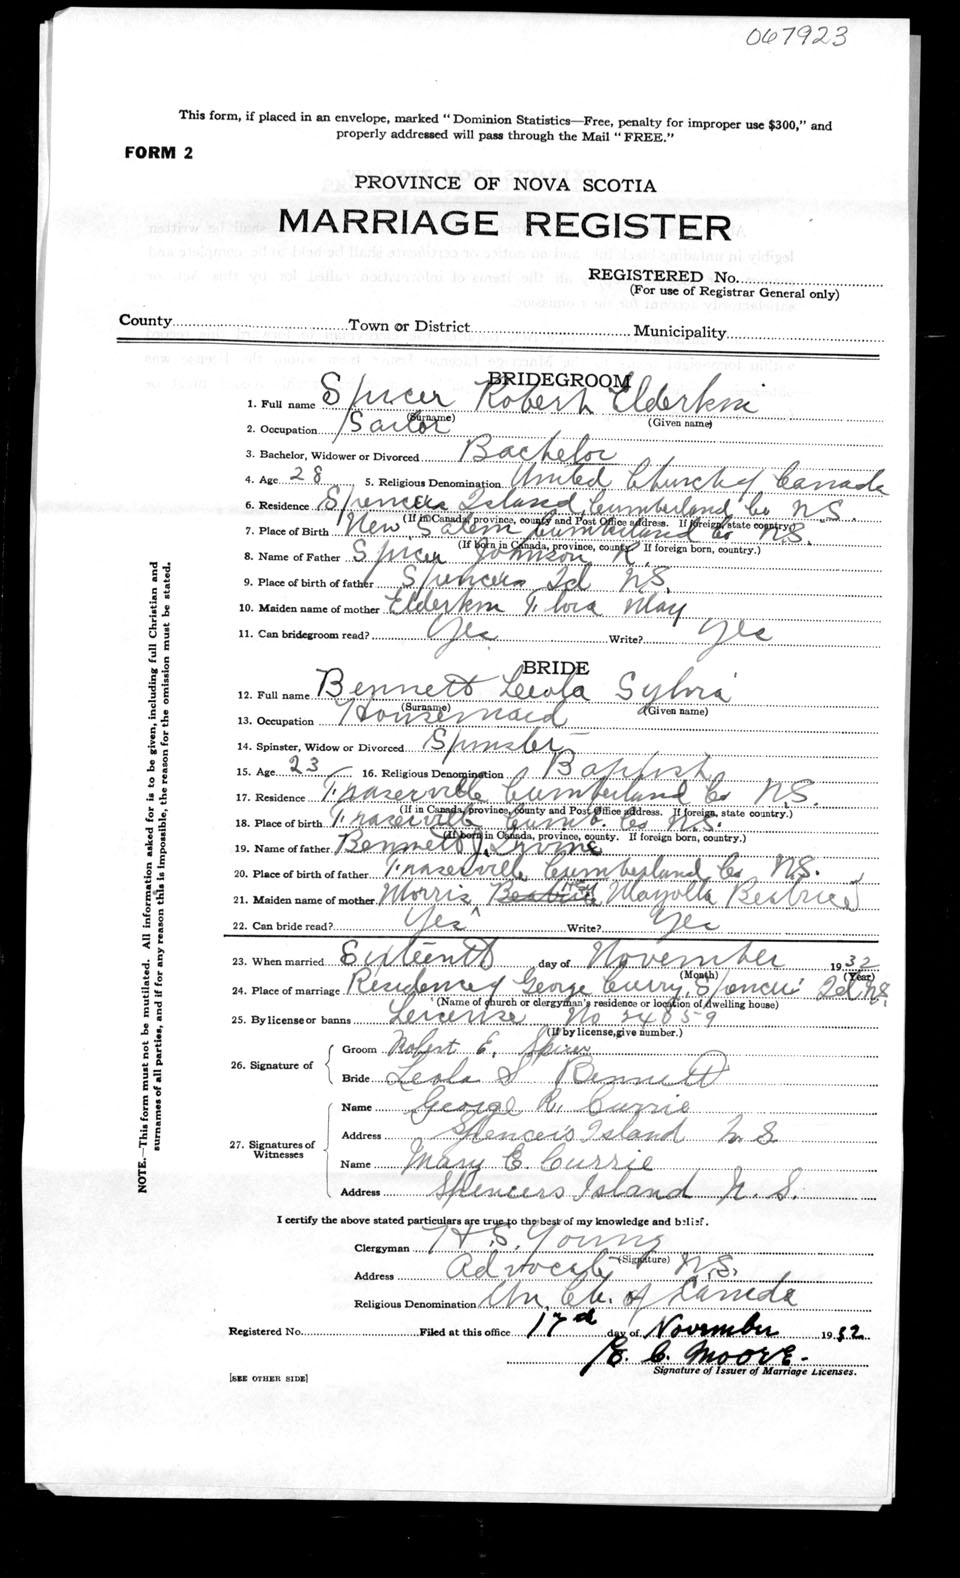 067923
This form, if placed in an envelope, marked "Dominion Statistics—Free, penalty for improper use $300," and
properly addressed will pass through the Mail "FREE."
FORM 2
PROVINCE OF NOVA SCOTIA
MARRIAGE REGISTER
REGISTERED No.
(For use of Registrar General only)
County Town or District Municipality
BRIDEGROOM
1. Full name Spicer Robert Elderkin
(Surname) (Given name)
2. Occupation Sailor
3. Bachelor, Widower or Divorced Bachelor
4. Age 28 5. Religious Denomination United Church of Canada
6. Residence Spencers Island, Cumberland Co N.S.
(If in Canada, province, county and Post Office address. If foreign, state country.)
7. Place of Birth New Salem Cumberland Co N.S.
(If born in Canada, province, county. If foreign born, country.)
8. Name of Father Spicer Johnson R.
9. Place of birth of father Spencers Isd N.S.
10. Maiden name of mother Elderkin Flora May
11. Can bridegroom read? Yes Write? Yes
BRIDE
12. Full name Bennett Leola Sylvia
(Surname) (Given name)
13. Occupation Housemaid
14. Spinster, Widow or Divorced Spinster
15. Age 23 16. Religious Denomination Baptist
17. Residence Fraserville Cumberland Co N.S.
(If in Canada, province, county and Post Office address. If foreign, state country.)
18. Place of birth Fraserville Cumb. Co N.S.
(If born in Canada, province, county. If foreign born, country.)
19. Name of father Bennett J. Irvine
20. Place of birth of father Fraserville Cumberland Co N.S.
21. Maiden name of mother Morris Beatrice Mayolla Beatrice
22. Can bride read? Yes Write? Yes
23. When married Sixteenth day of November 1932
(Month) (Year)
24. Place of marriage Residence of George Curry, Spencers Isd N.S.
(Name of church or clergyman's residence or location of dwelling house)
25. By license or banns Leicense No 24859
(If by license, give number.)
26. Signature of
Groom Robert E. Spicer
Bride Leola S Bennett
27. Signatures of Witnesses
Name George R. Currie
Address Spencer's Island N.S.
Name Mary E. Currie
Address Spencers Island N.S.
I certify the above stated particulars are true to the best of my knowledge and belief.
Clergyman H.S. Young
(Signature)
Address Advocate N.S.
Religious Denomination Un. Ch. of Canada
Registered No. Filed at this office 17d day of November 1932
E. C. Moore.
Signature of Issuer of Marriage Licenses.
[SEE OTHER SIDE]
NOTE.—This form must not be mutilated. All information asked for is to be given, including full Christian and
surnames of all parties, and if for any reason this is impossible, the reason for the omission must be stated.